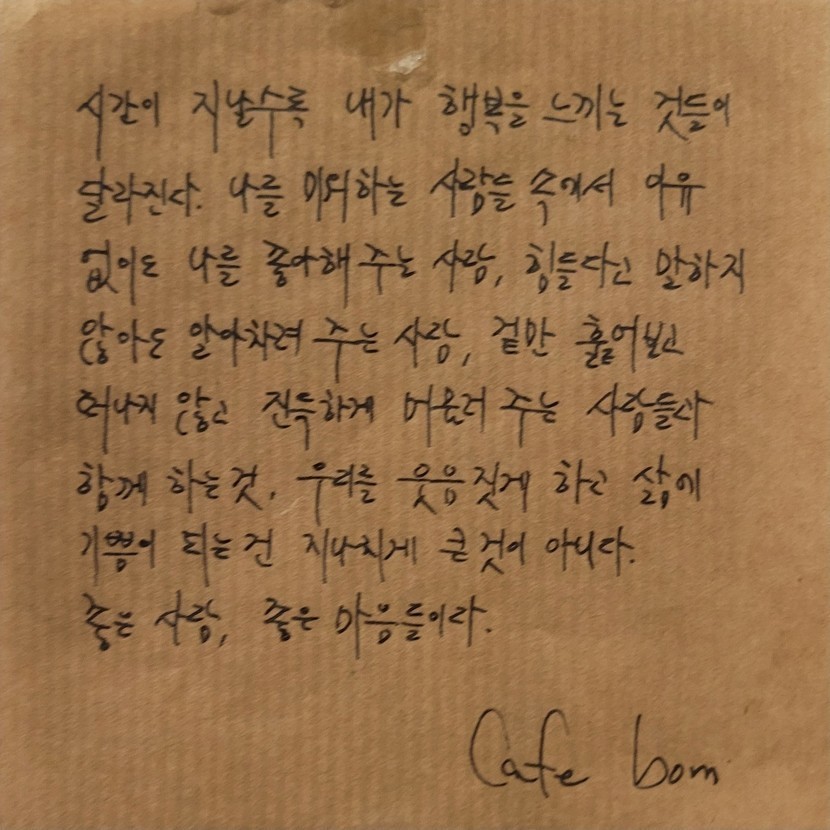 시간이 지날수록 내가 행복을 느끼는 것들이
달라진다. 나를 미워하는 사람들 속에서 이유
없이도 나를 좋아해 주는 사람, 힘들다고 말하지
않아도 알아차려 주는 사람, 겉만 훑어보고
떠나지 않고 진득하게 머물러 주는 사람들과
함께 하는것, 우리를 웃음짓게 하고 삶에
기쁨이 되는건 지나치게 큰것이 아니다.
좋은 사람, 좋은 마음들이라.
Cafe bom